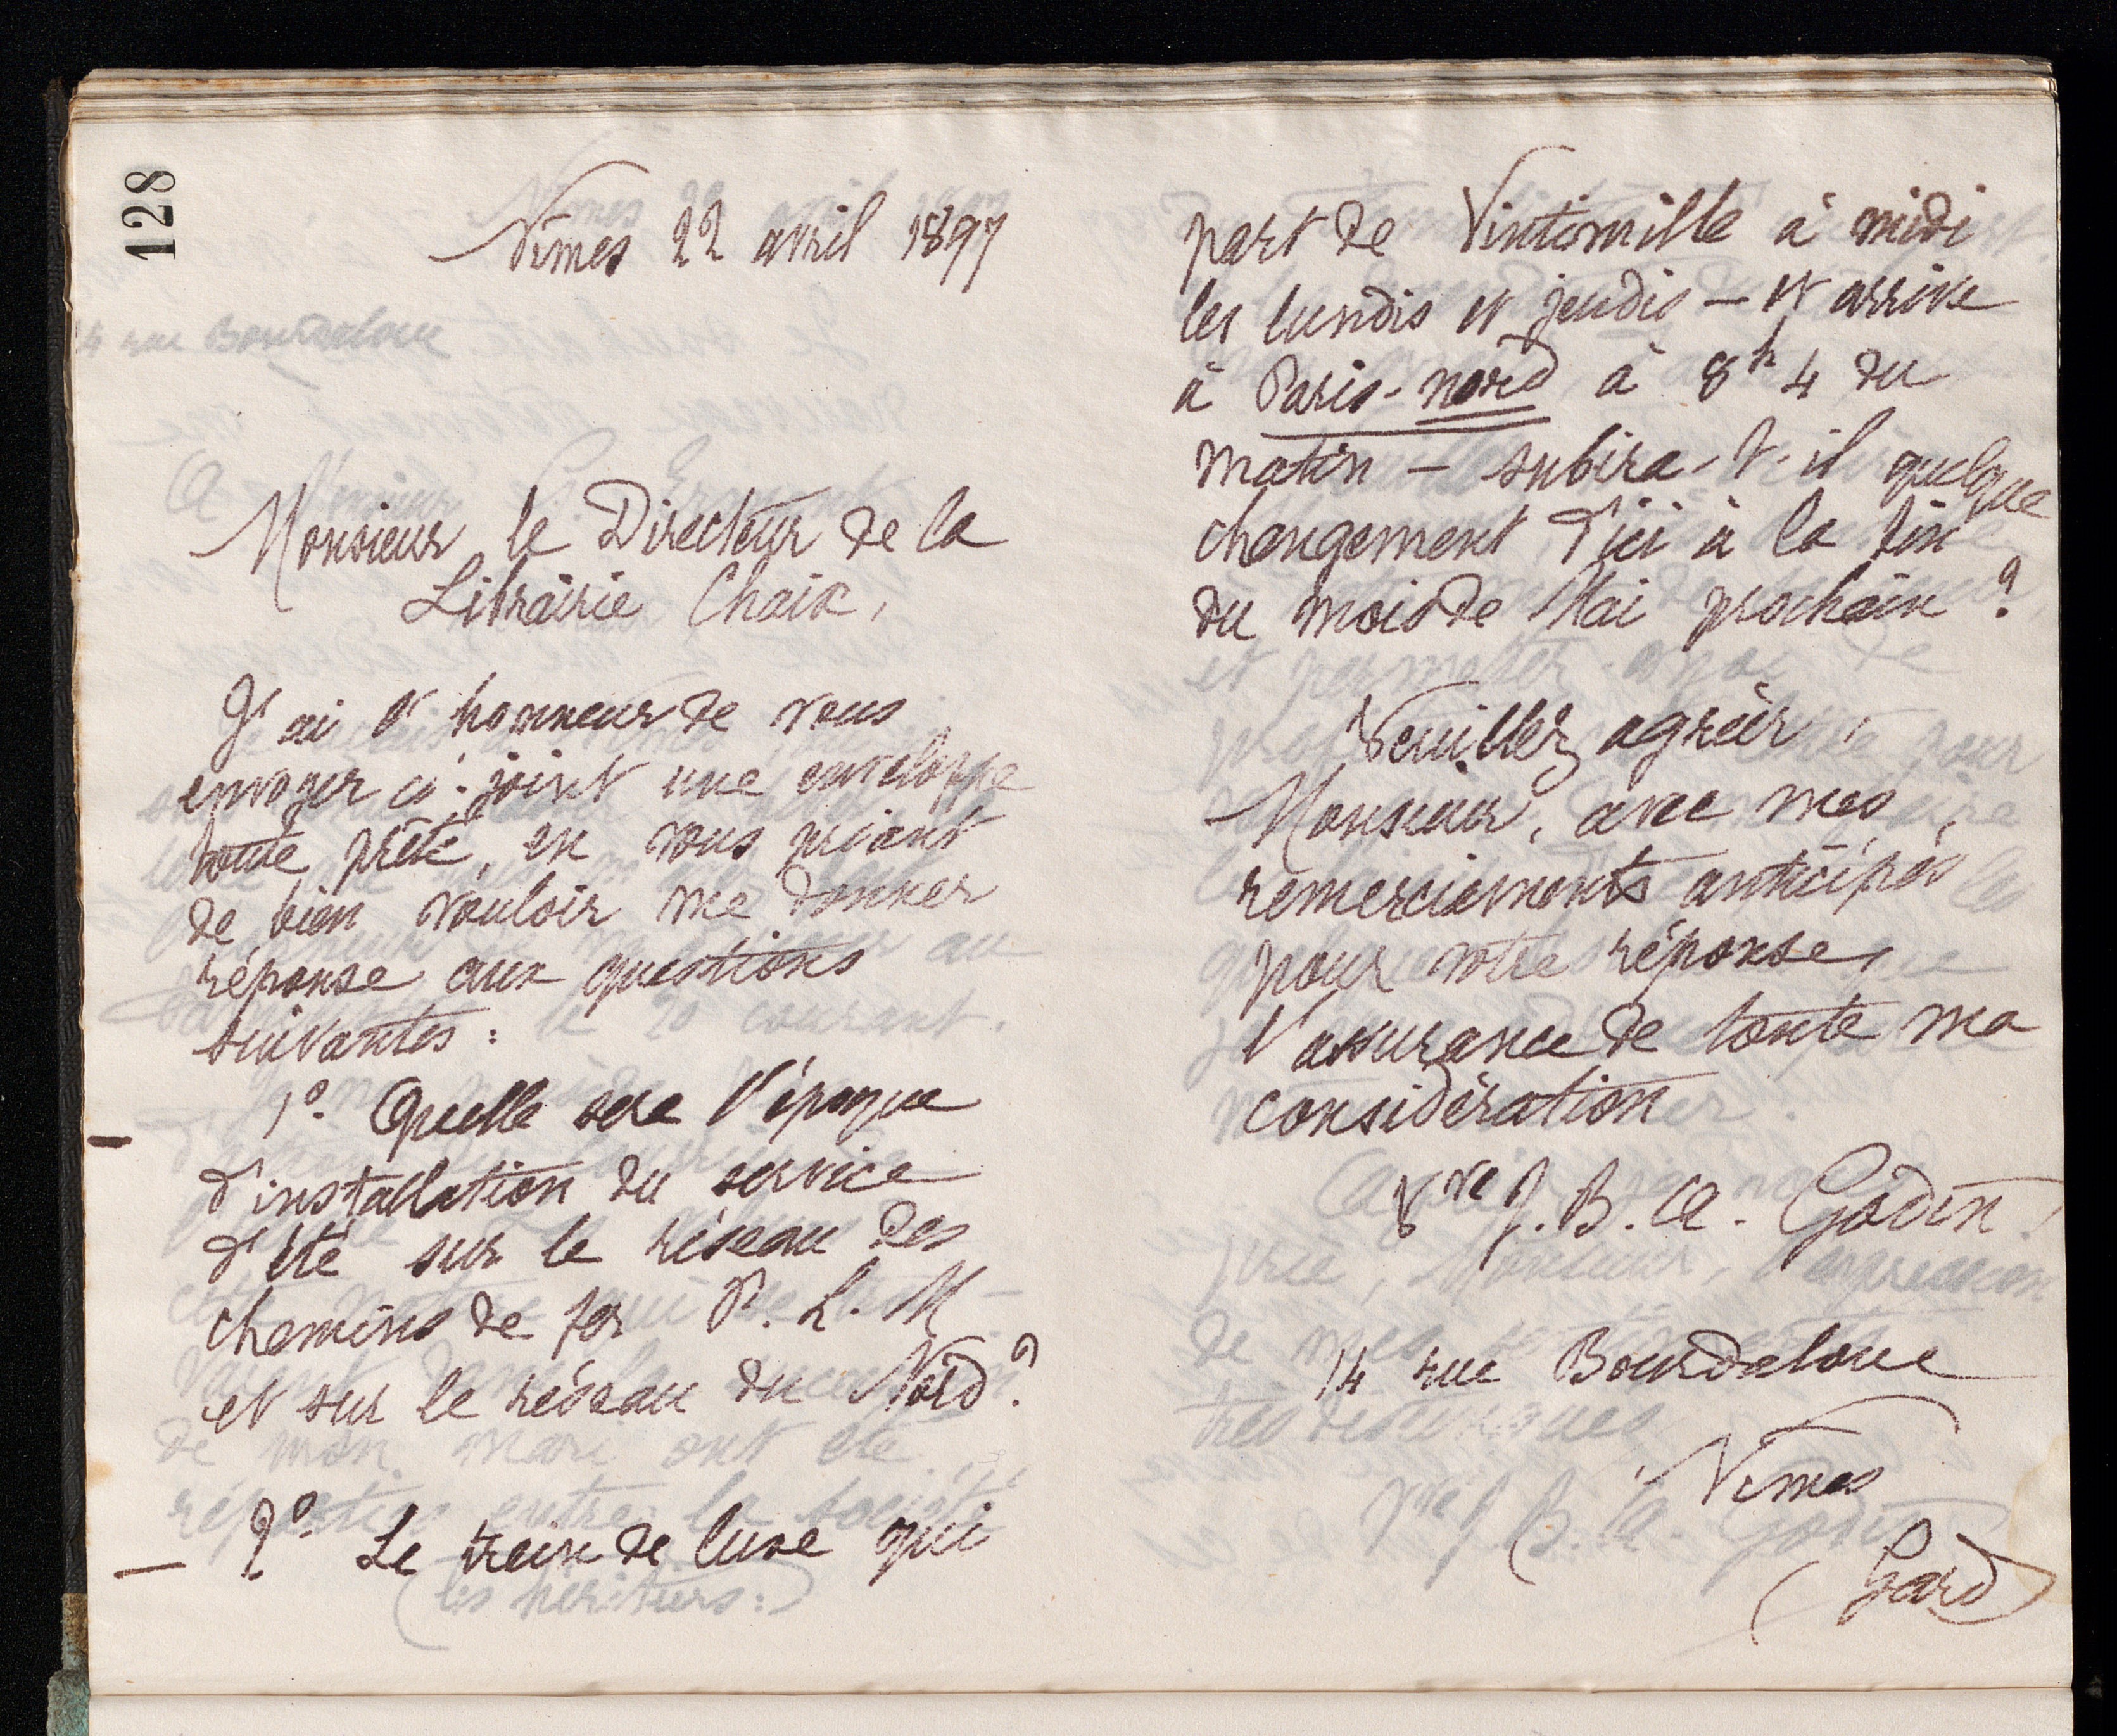 128
Nîmes 22 avril 1897
Monsieur le Directeur de la
Librairie Chaix,
J'ai l'honneur de vous
envoyer ci-joint une enveloppe
toute prête, en vous priant
de bien vouloir me donner
réponse aux questions
suivantes :
1º. Quelle sera l'époque
d'installation du service
d'été sur le réseau des
chemins de fer P. L. M
et sur le réseau du Nord ?
— 2º. Le train de luxe qui
part de Vintimille à midi
les lundis et jeudis — et arrive
à Paris-nord à 8h 4 du
matin — subira-t-il quelque
changement d'ici à la fin
du mois de Mai prochain ?
Veuillez agréer,
Monsieur, avec mes
remerciements anticipés
pour votre réponse,
l'assurance de toute ma
considération
Vve J. B. A. Godin
14 rue Bourdaloue
Nîmes
(Gard)